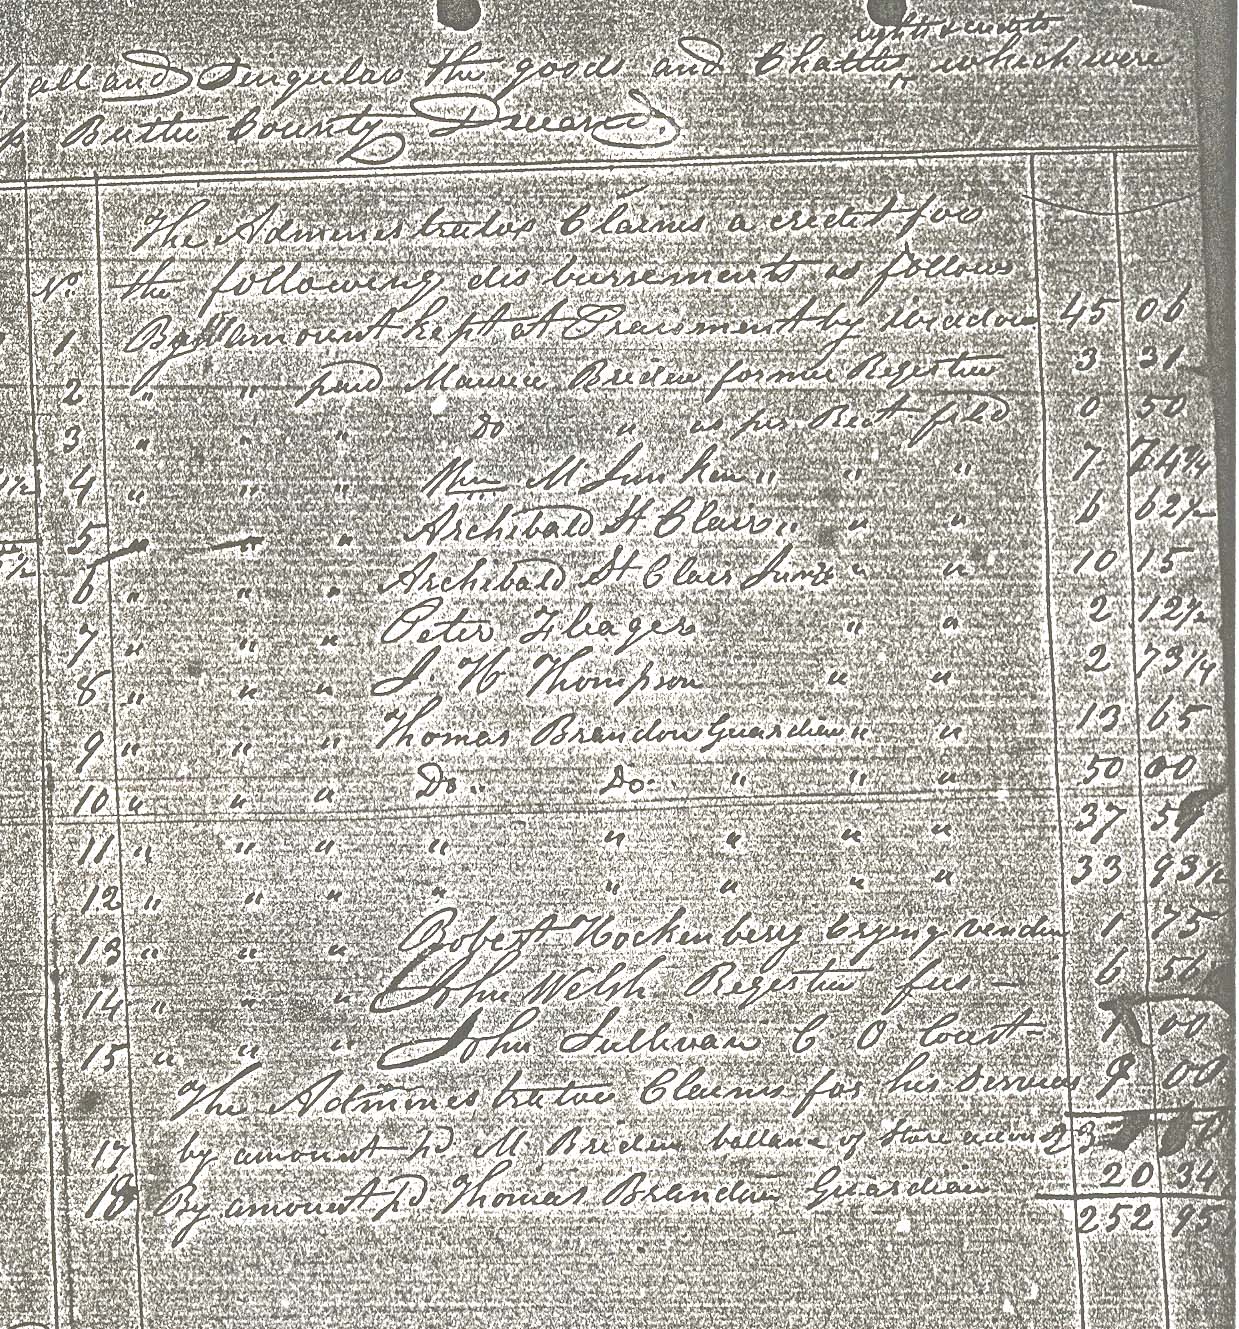 rights & credits
all and Singular the goods and Chattles which were
Butler County Deceasd.
The Administrator Claims a credit for
No. the following disbursements as follows
1 By amount kept at Praisment by widow 45 06
2 " " paid Maurice Breden former Register 3 31
3 " " " Do " as per Rect fild 0 50
4 " " " Wm M Junkin " " " 7 74 3/4
5 " " " Archibald St Clair " " " 6 62 1/2
6 " " " Archibald St Clair Junr " " 10 15
7 " " " Peter Fleager " " 2 12 1/2
8 " " " J H Thompson " " 2 73 1/4
9 " " " Thomas Brandon Guardian " " 13 65
10 " " " Do " Do " " " 50 00
11 " " " " " " " " 37 5
12 " " " " " " " " 33 93 1/2
13 " " " Robert Hockenberry Crying vendue 1 75
14 " " " John Welsh Register fees — 6 56
15 " " " John Sullivan C O Court 1 00
The Administrator Claims for his Services 9 00
17 by amount pd M Breden ballance of Store account
18 By amount pd Thomas Brandon Guardian 20 34
252 95